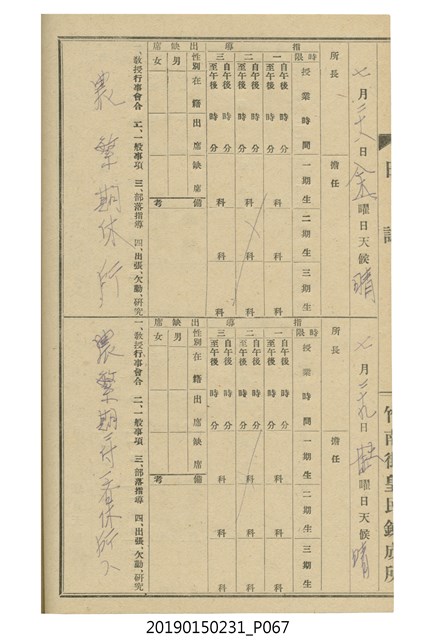 日誌
竹南街皇民鍊成所
七月二十八日金曜日天候晴
所長 擔任
指導
時限 授業時間 一期生 二期生 三期生
一 自午後 時 分 至午後 科 科 科
二 自午後 時 分 至午後 科 科 科
三 自午後 時 分 至午後 科 科 科
出缺席
性別 在籍 出席 缺席 備考
男
女
一、教授行事會合 二、一般事項 三、部落指導 四、出張、欠勤、研究
農繁期休所
七月二十九日 曜日天候晴
所長 擔任
指導
時限 授業時間 一期生 二期生 三期生
一 自午後 時 分 至午後 科 科 科
二 自午後 時 分 至午後 科 科 科
三 自午後 時 分 至午後 科 科 科
出缺席
性別 在籍 出席 缺席 備考
男
女
一、教授行事會合 二、一般事項 三、部落指導 四、出張、欠勤、研究
農繁期
20190150231_P067